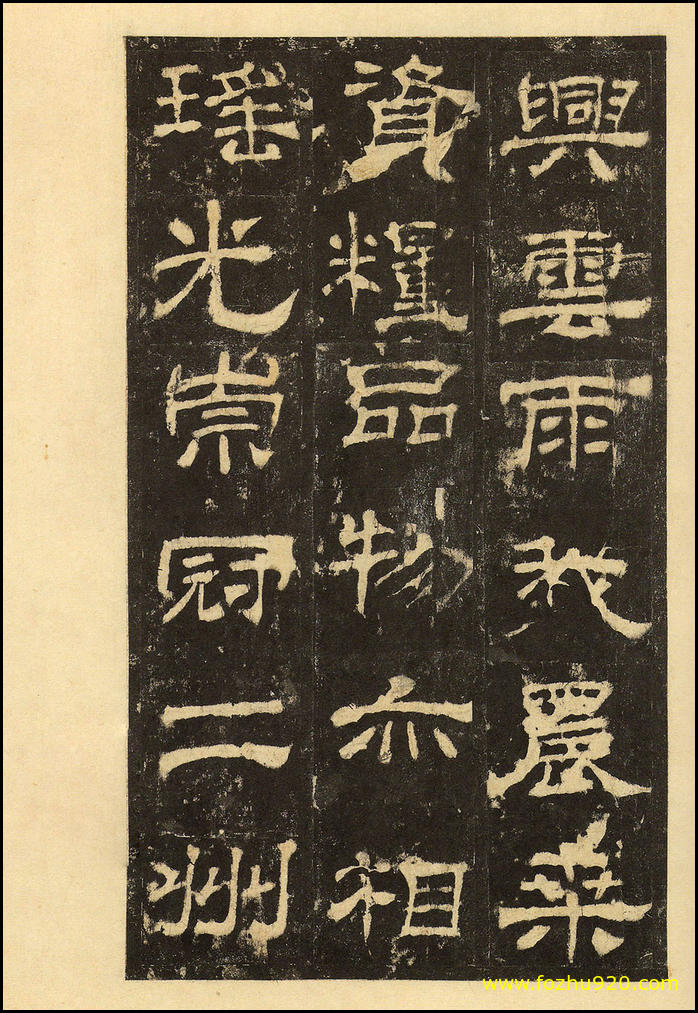 興雲雨我農桑
資糧品物亦相
瑤光崇冠二州
www.fozhu920.com